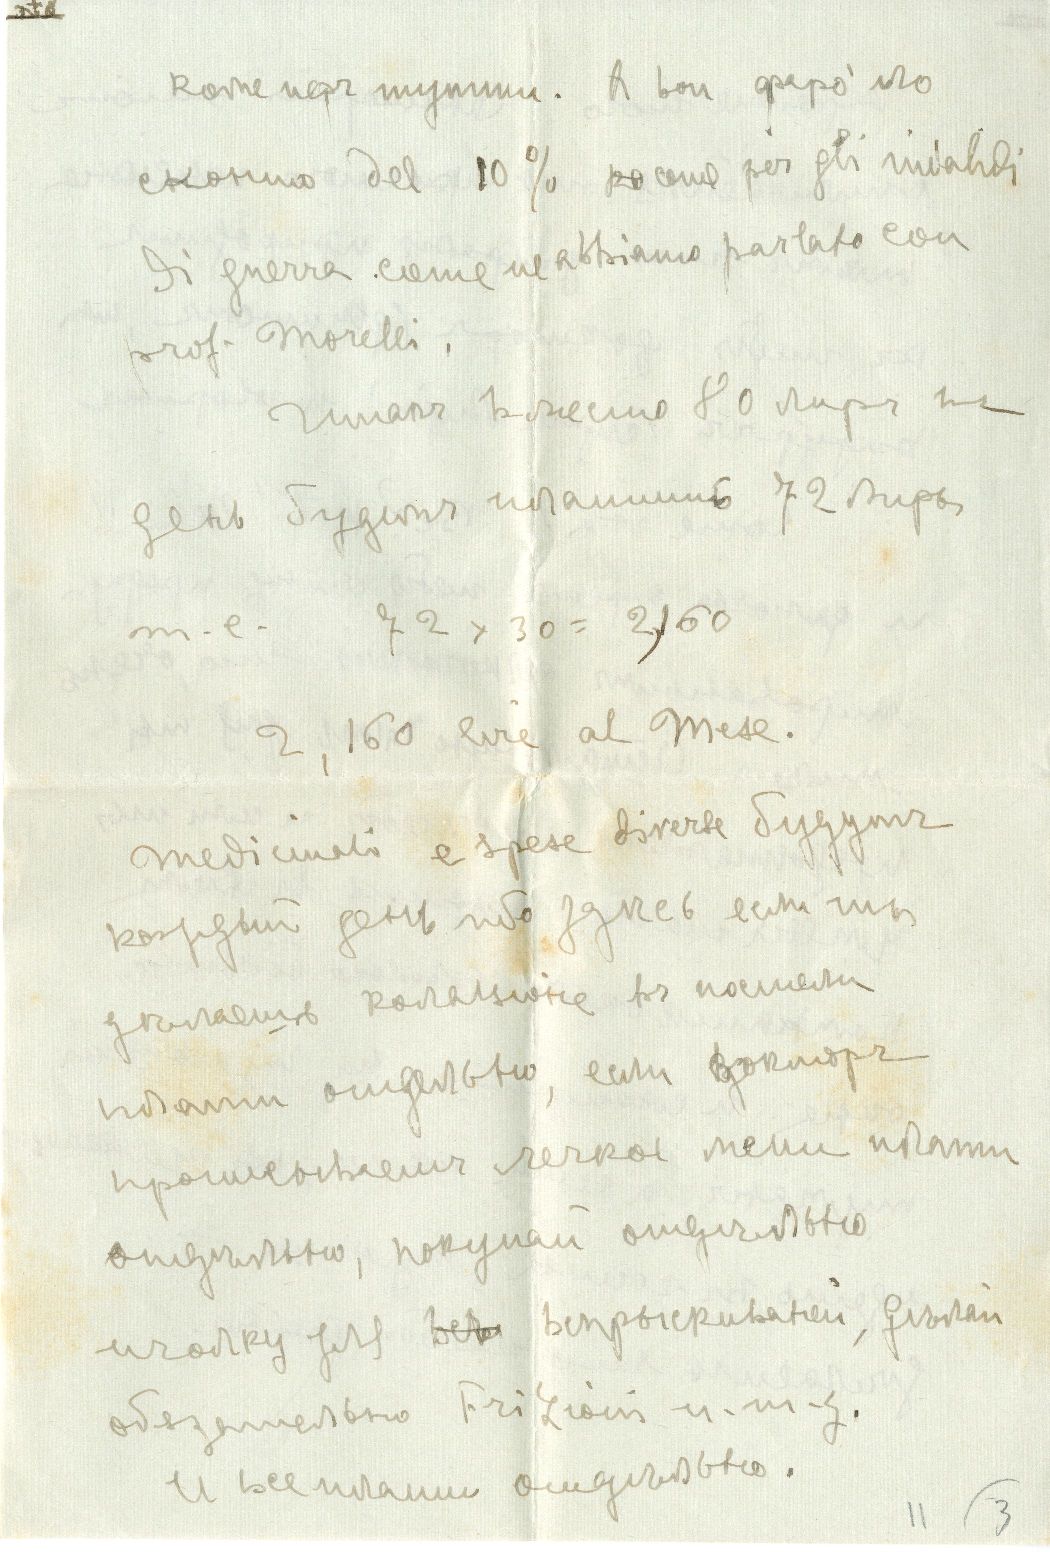 коме перъ тутти. А вои фаро' ло
сконто del 10% come per gli invalidi
di guerra come ne abbiamo parlato con
prof. Morelli.
Итакъ вмѣсто 80 лиръ въ
день будутъ платить 72 лиры
т-е- 72 x 30 = 2,160
2,160 lire al Mese.
Medicinali e spese diverse будутъ
каждый день ибо здѣсь если ты
дѣлаешь колаціоне въ постели
плати отдельно, если докторъ
прописываетъ легкое мени плати
отдѣльно, покупай отдѣльно
иголку для впрыскиваней, дѣлай
обязательно Frizioni и-т-д.
И все плати отдѣльно.
11 3